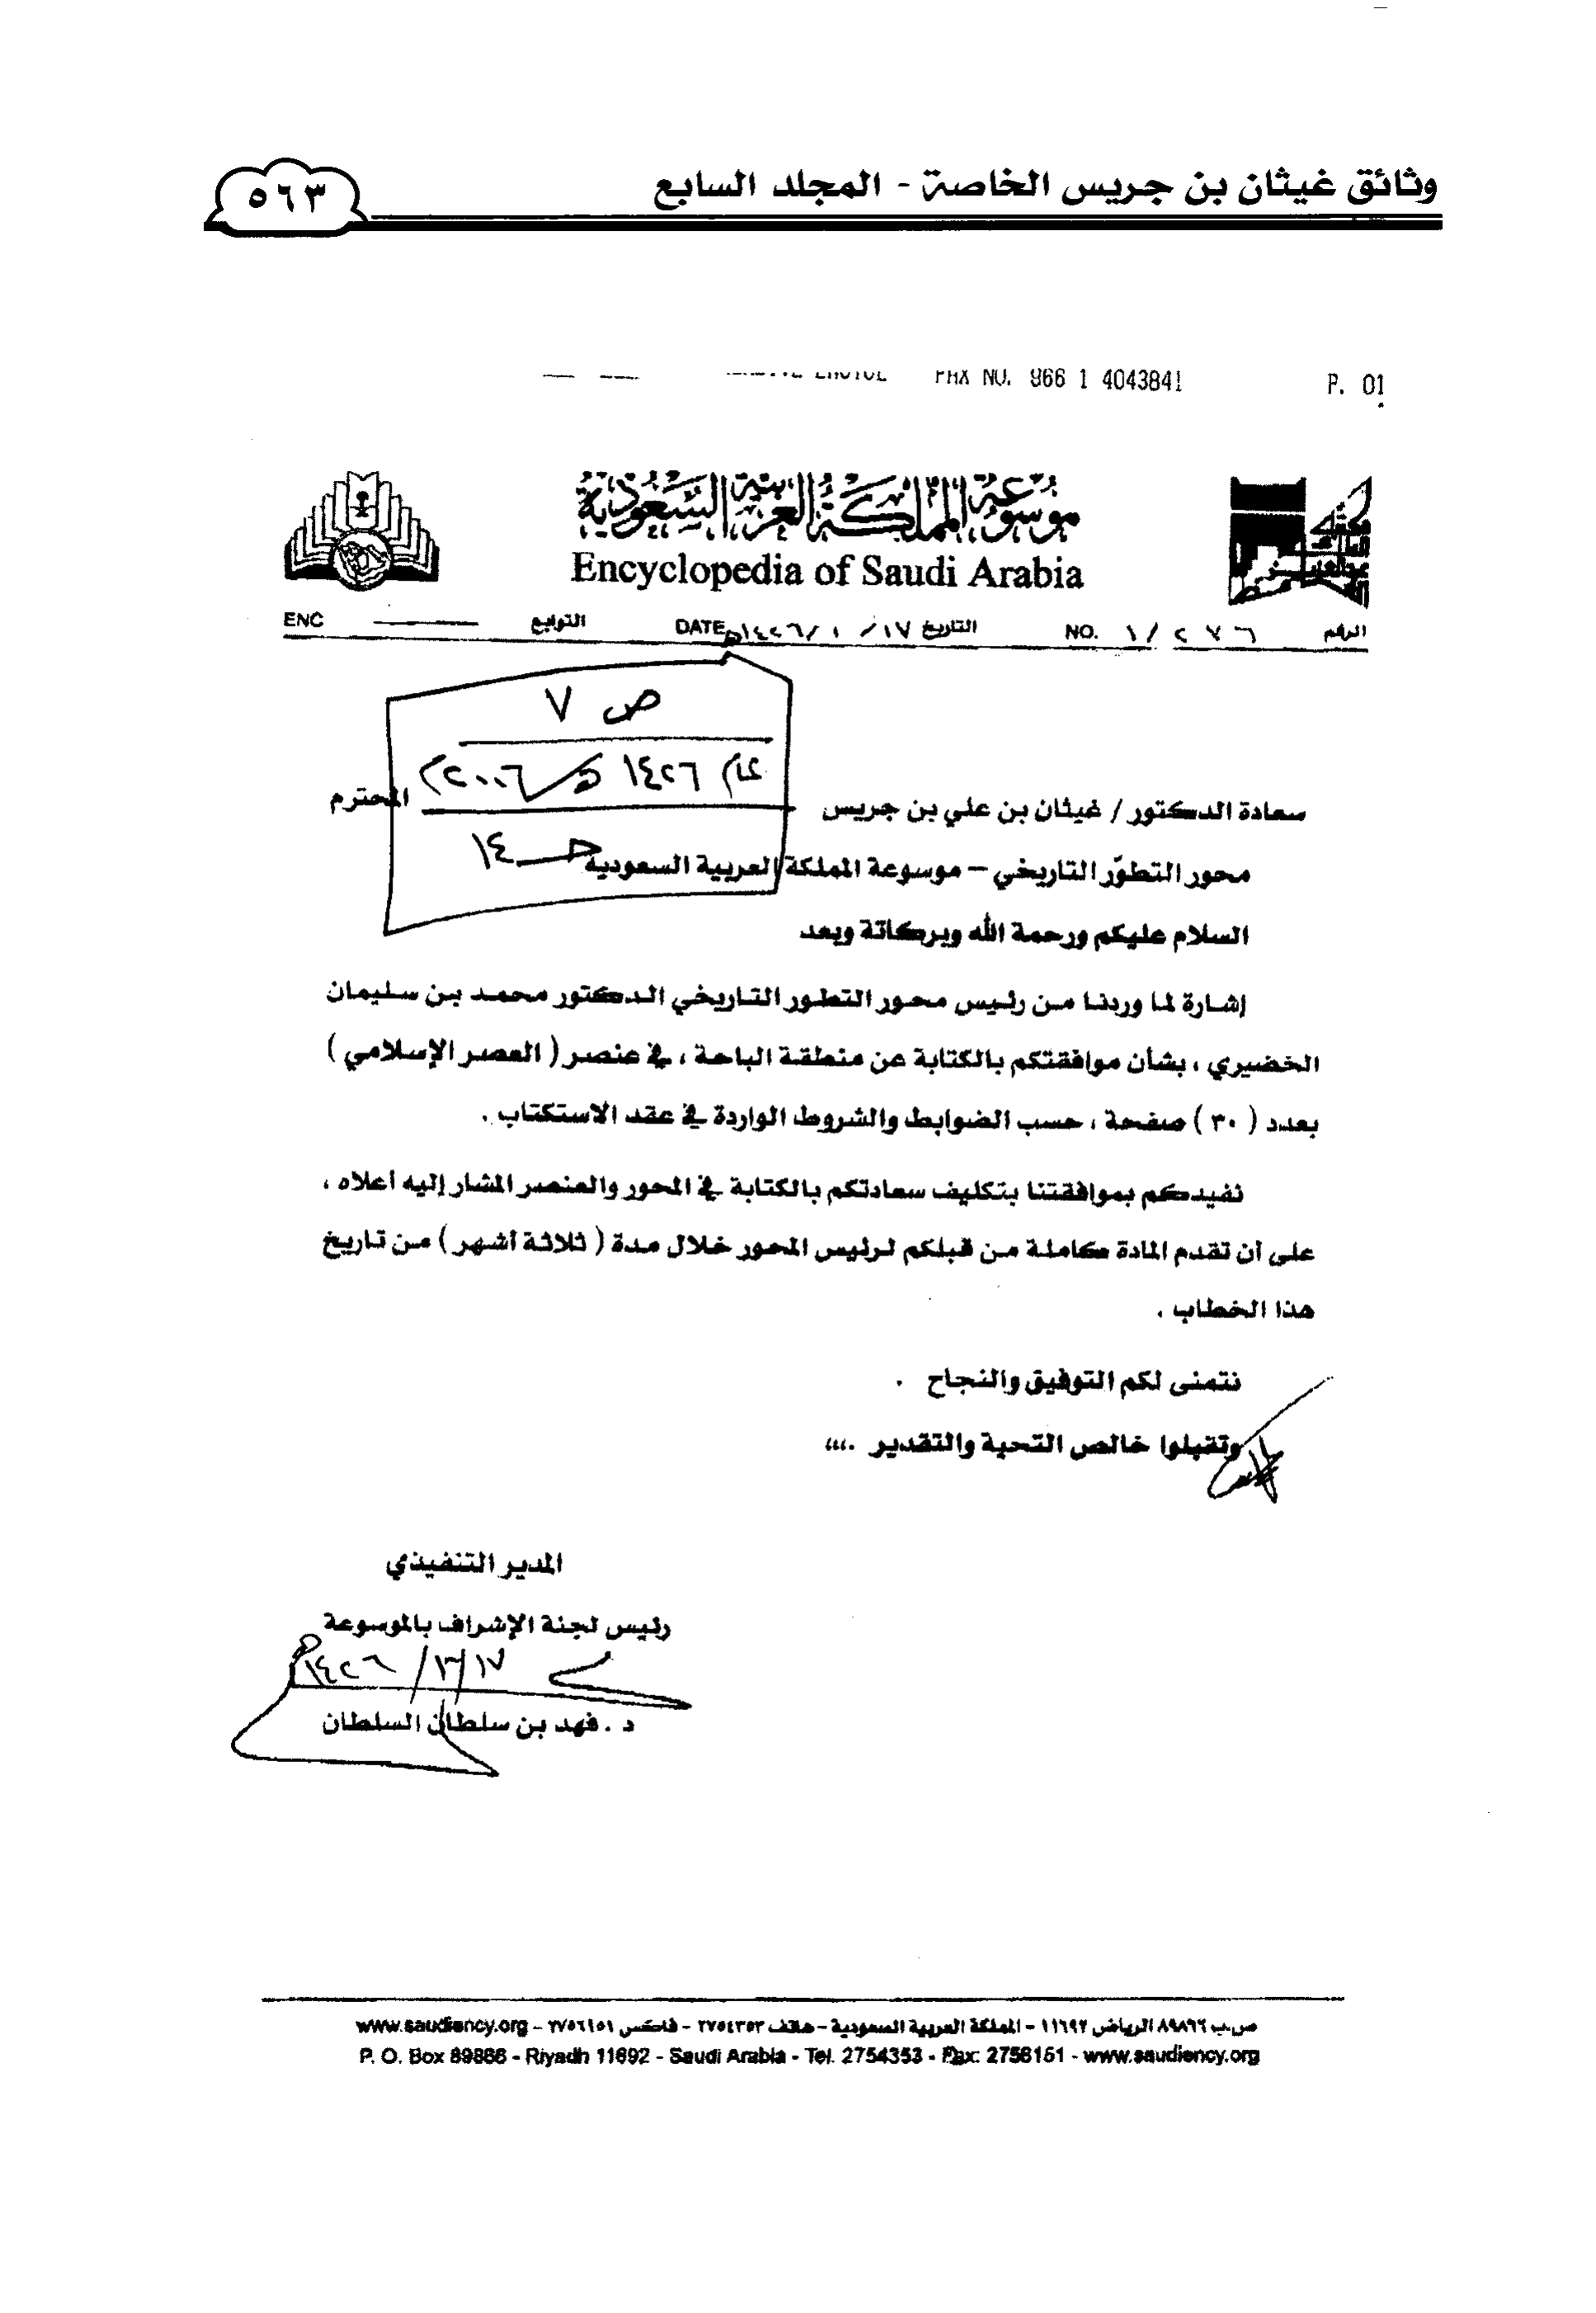 وثائق غيثان بن جريس الخاصة - المجلد السابع
٥٦٣
FAX NO. 966 1 4043841 P. 01
موسوعة المملكة العربية السعودية
Encyclopedia of Saudi Arabia
الرقم ١/٢٧٦ NO. التاريخ ١٧/ ١٤٢٦هـ DATE التوابع ENC
ص ٧
عام ١٤٢٦هـ/٢٠٠٦م
حـ ١٤
سعادة الدكتور / غيثان بن علي بن جريس المحترم
محور التطوّر التاريخي – موسوعة المملكة العربية السعودية
السلام عليكم ورحمة الله وبركاتة وبعد
إشارة لما وردنا من رئيس محور التطور التاريخي الدكتور محمد بن سليمان
الخضيري ، بشأن موافقتكم بالكتابة عن منطقة الباحة ، في عنصر ( العصر الإسلامي )
بعدد ( ٣٠ ) صفحة ، حسب الضوابط والشروط الواردة في عقد الاستكتاب .
نفيدكم بموافقتنا بتكليف سعادتكم بالكتابة في المحور والعنصر المشار إليه أعلاه ،
على أن تقدم المادة كاملة من قبلكم لرئيس المحور خلال مدة ( ثلاثة أشهر ) من تاريخ
هذا الخطاب .
نتمنى لكم التوفيق والنجاح .
وتقبلوا خالص التحية والتقدير ،،،،
المدير التنفيذي
رئيس لجنة الإشراف بالموسوعة
د . فهد بن سلطان السلطان
ص.ب ٨٩٨٦٦ الرياض ١١٦٩٢ – المملكة العربية السعودية – هاتف ٢٧٥٤٣٥٣ – فاكس ٢٧٥٦١٥١ – www.saudiency.org
P. O. Box 89866 - Riyadh 11692 - Saudi Arabia - Tel. 2754353 - Fax: 2756151 - www.saudiency.org